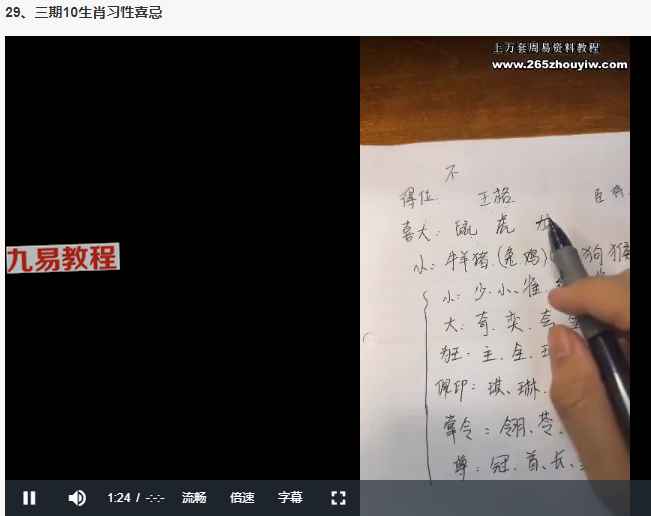 29、三期10生肖习性喜忌
上万套周易资料教程
www.265zhouyiw.com
九易教程
不
得位 王格 臣
喜大：鼠 虎 龙
小：牛羊猪（兔鸡） 狗猴
小：少、小、雀
大：奇、奕
为王：主、全
佩印：琪、琳
掌令：翎、苓
尊：冠、首、长
1:24 / -:-:-
流畅
倍速
字幕